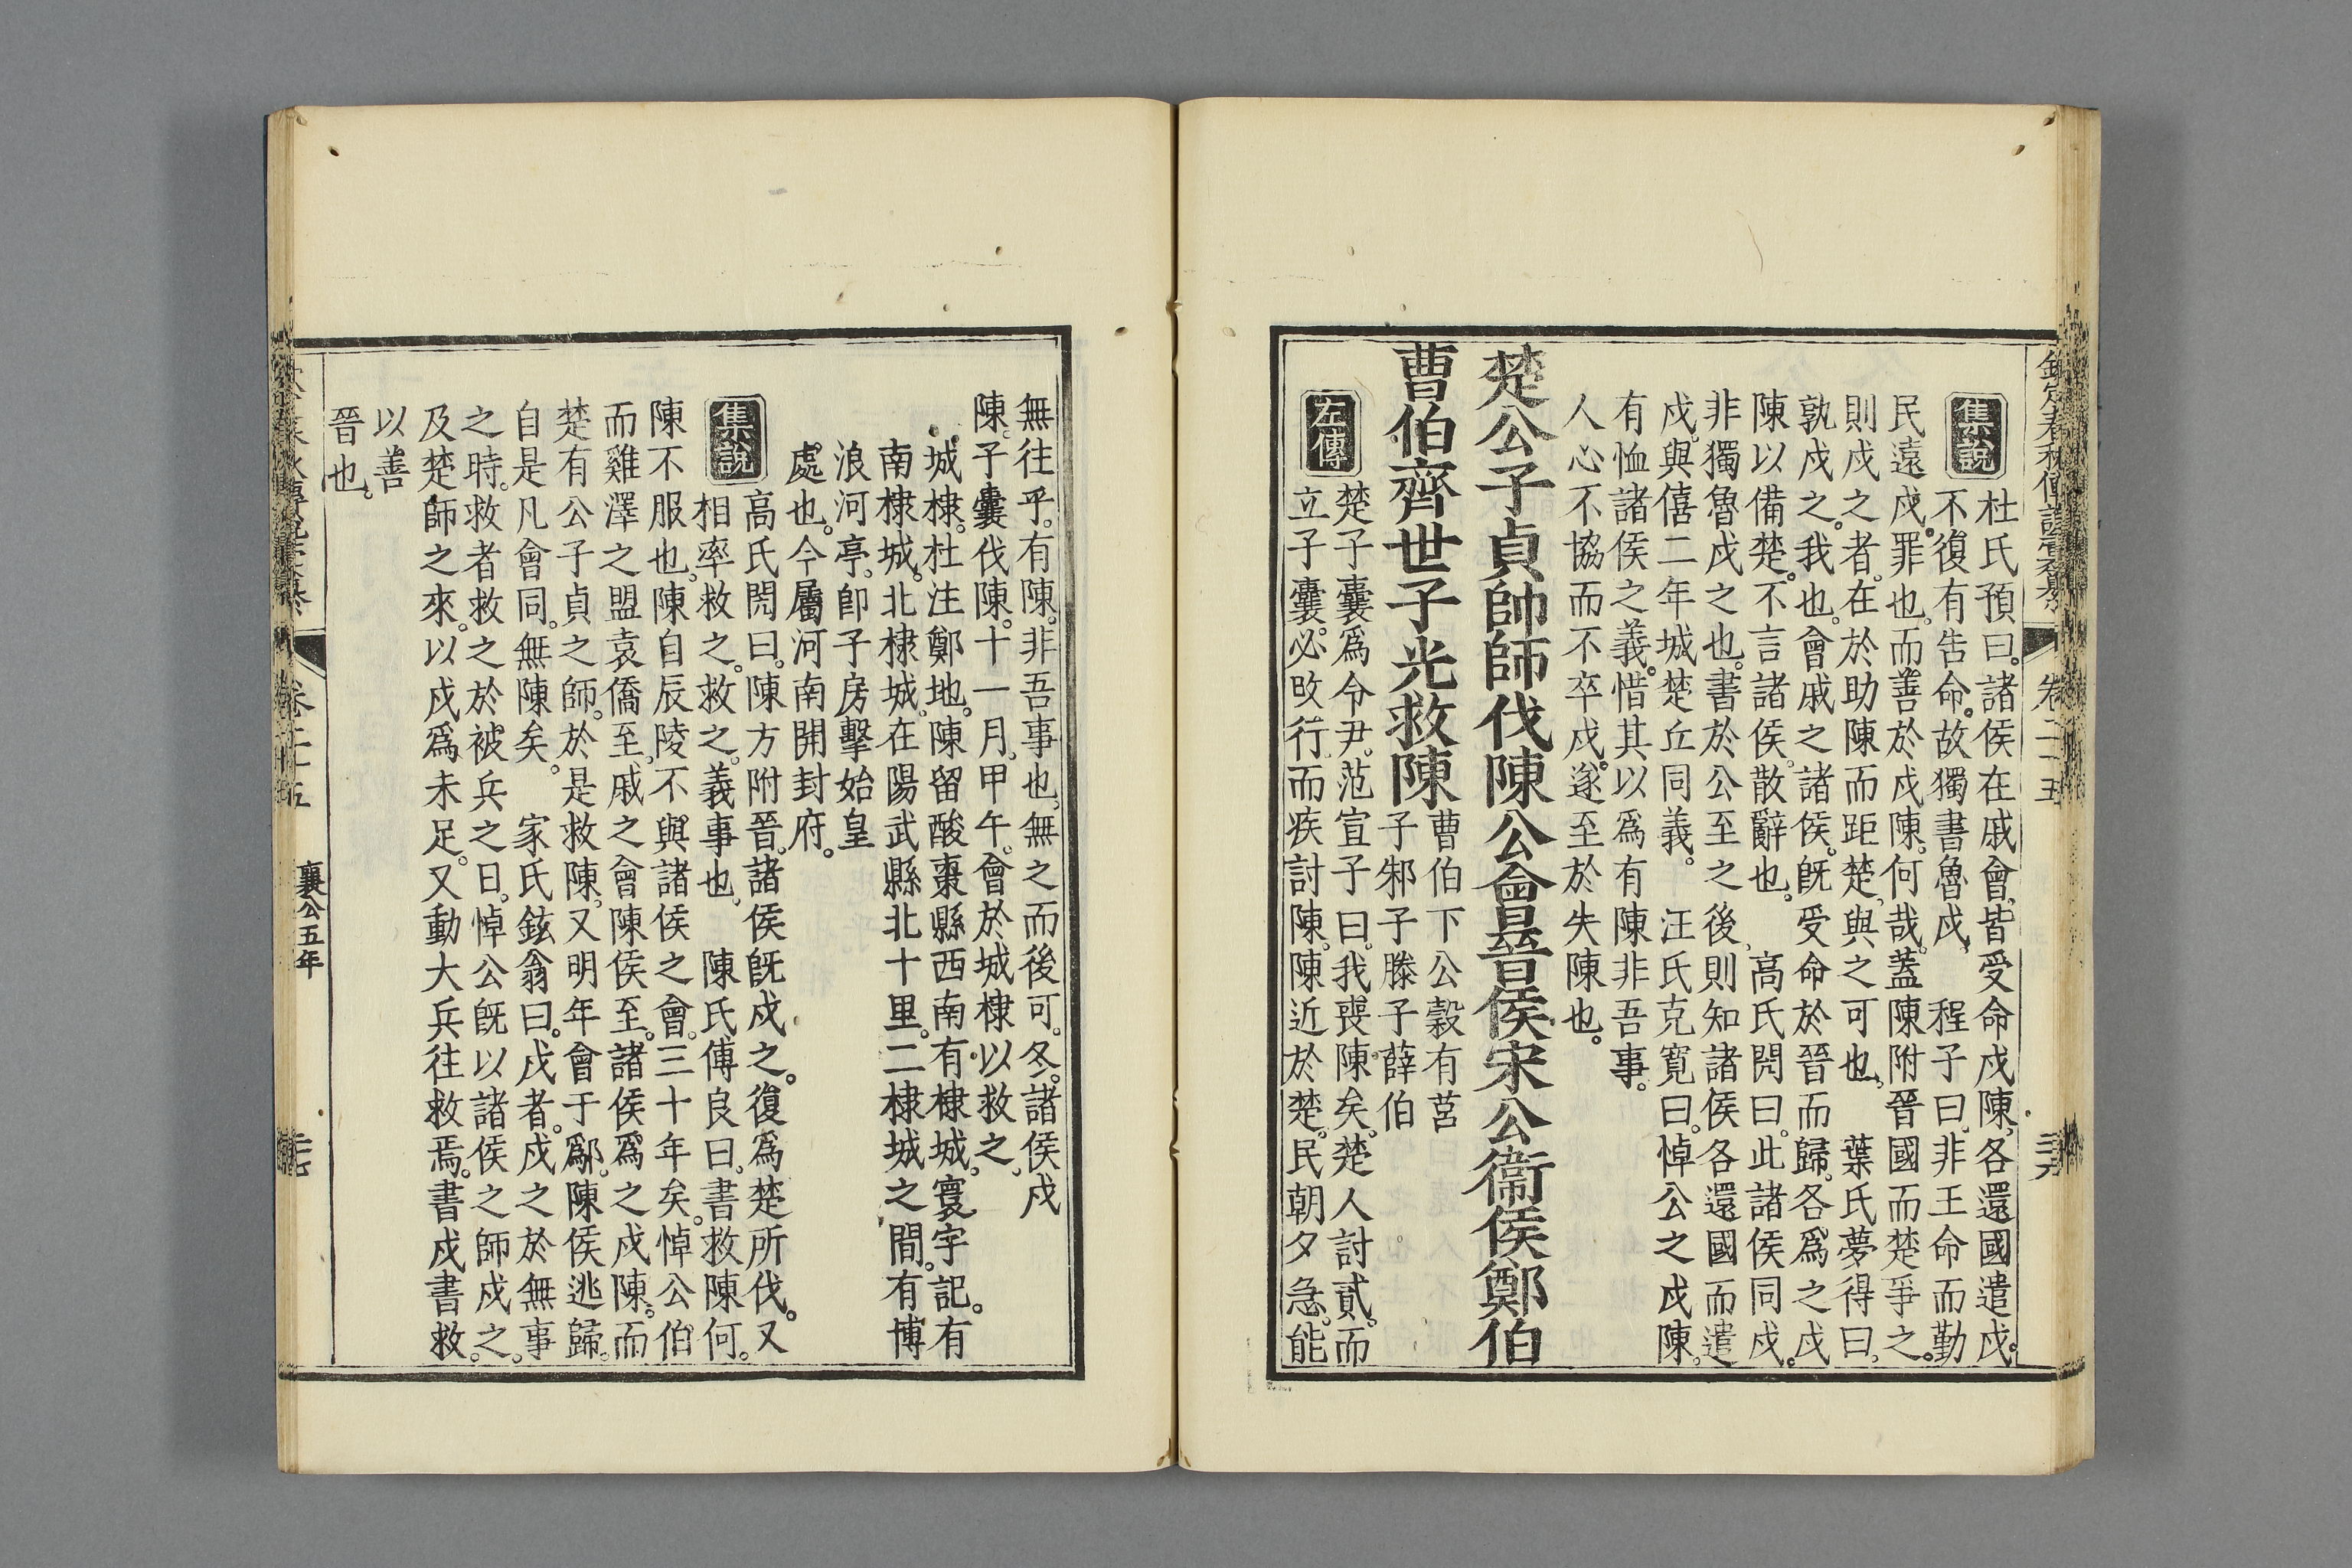 欽定春秋傳說彙纂 卷二十五
集說
杜氏預曰。諸侯在戚會。皆受命戍陳。各還國遣戍。
不復有告命。故獨書魯戍。 程子曰。非王命而勤
民遠戍。罪也。而善於戍陳。何哉。蓋陳附晉國而楚爭之。
則戍之者。在於助陳而距楚。與之可也。 葉氏夢得曰。
孰戍之。我也。會戚之諸侯。旣受命於晉而歸。各爲之戍
陳以備楚。不言諸侯。散辭也。 高氏閌曰。此諸侯同戍。
非獨魯戍之也。書於公至之後。則知諸侯各還國而遣
戍。與僖二年城楚丘同義。 汪氏克寬曰。悼公之戍陳。
有恤諸侯之義。惜其以爲有陳非吾事。
人心不協而不卒戍。遂至於失陳也。
楚公子貞帥師伐陳公會晉侯宋公衞侯鄭伯
曹伯齊世子光救陳
曹伯下公穀有莒
子邾子滕子薛伯
左傳
楚子囊爲令尹。范宣子曰。我喪陳矣。楚人討貳。而
立子囊。必改行。而疾討陳。陳近於楚。民朝夕急。能
無往乎。有陳。非吾事也。無之而後可。冬。諸侯戍
陳。子囊伐陳。十一月。甲午。會於城棣以救之。
城棣。杜注鄭地。陳留酸棗縣西南有棣城。寰宇記。有
南棣城。北棣城。在陽武縣北十里。二棣城之間。有博
浪河亭。卽子房擊始皇
處也。今屬河南開封府。
集說
高氏閌曰。陳方附晉。諸侯旣戍之。復爲楚所伐。又
相率救之。救之。義事也。 陳氏傅良曰。書救陳何。
陳不服也。陳自辰陵不與諸侯之會。三十年矣。悼公伯
而雞澤之盟袁僑至。戚之會陳侯至。諸侯爲之戍陳。而
楚有公子貞之師。於是救陳。又明年會于鄬。陳侯逃歸。
自是凡會同。無陳矣。 家氏鉉翁曰。戍者。戍之於無事
之時。救者救之於被兵之日。悼公旣以諸侯之師戍之。
及楚師之來。以戍爲未足。又動大兵往救焉。書戍書救。
以善
晉也。
卷二十五 襄公五年